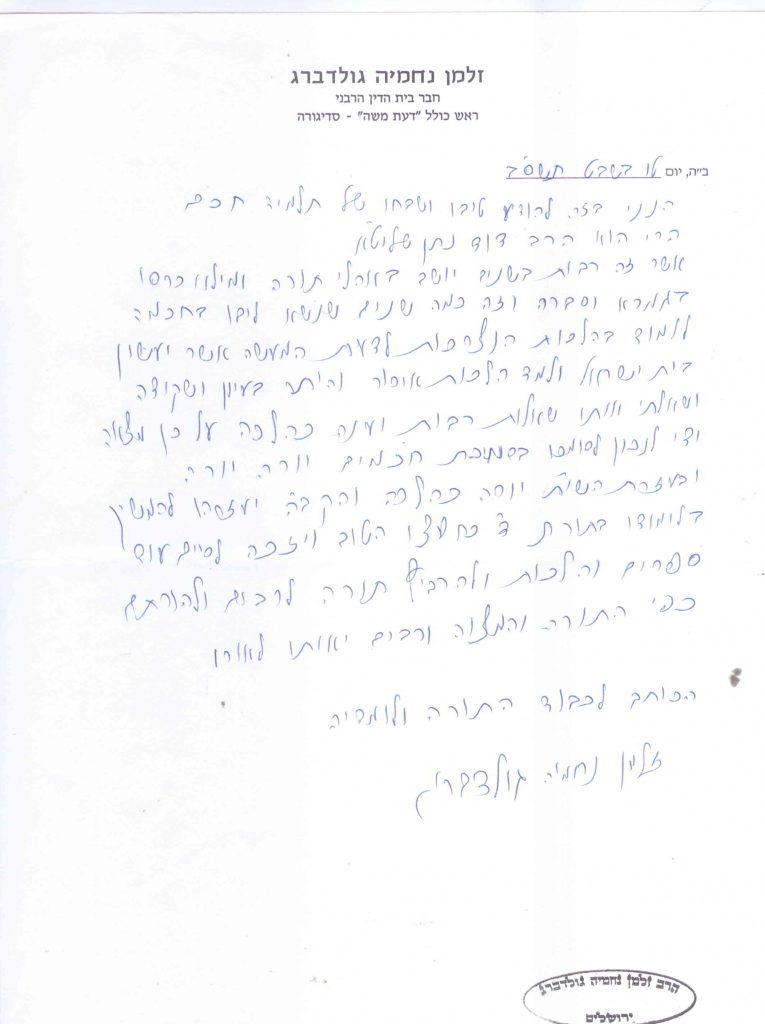 זלמן נחמיה גולדברג
חבר בית הדין הרבני
ראש כולל "דעת משה" - סדיגורה
ב"ה, יום טו בשבט תשס"ב
הנני בזה להודיע טיבו ושבחו של תלמיד חכם
הרי הוא הרב דוד נתן שליט"א
אשר זה רבות בשנים יושב באהלי תורה ומילא כרסו
בגמרא וסברה וזה כמה שנים שנשא ליבו בחכמה
ללמוד בהלכות הנצרכות לדעת המעשה אשר יעשון
בית ישראל ולמד הלכות איסור והיתר בעיון ושקידה
ושאלתי אותו שאלות רבות וענה כהלכה על כן מצאה
ידי לנכון לסומכו בסמיכת חכמים יורה יורה
ובעזרת השי"ת יורה כהלכה והקב"ה יעזרהו להמשיך
בלימודו בתורת ד' כחפצו הטוב ויזכה לסיים עוד
ספרים והלכות ולהרביץ תורה לרבים ולהורתם
כפי התורה והמצוה ורבים יאותו לאורו
הכותב לכבוד התורה ולומדיה
זלמן נחמיה גולדברג
הרב זלמן נחמיה גולדברג
ירושלים